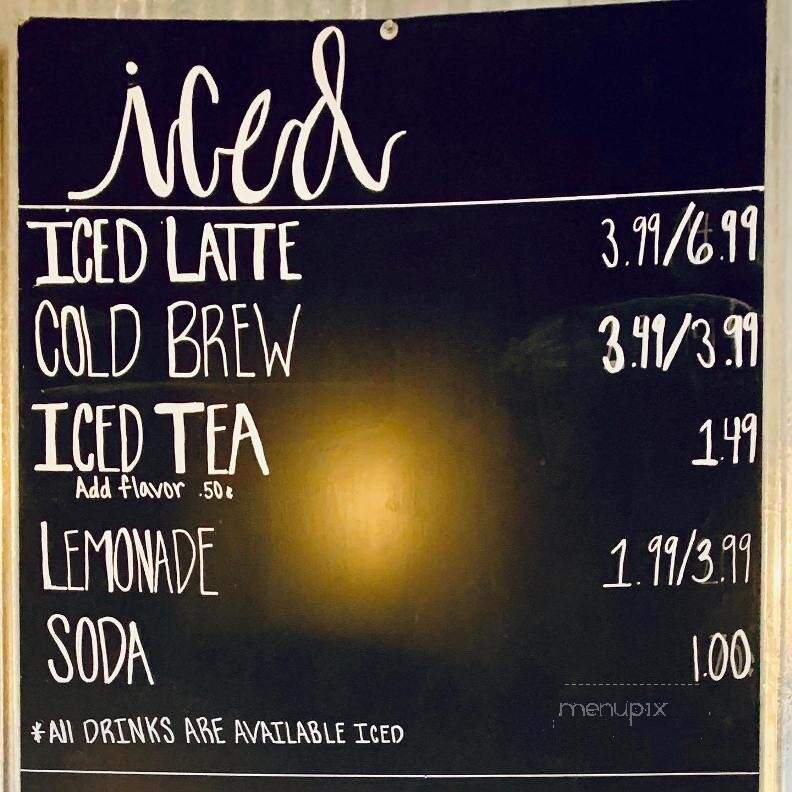 iced
ICED LATTE 3.99/6.99
COLD BREW 3.49/3.99
ICED TEA 1.49
Add flavor .50¢
LEMONADE 1.99/3.99
SODA 1.00
menupix
*All DRINKS ARE AVAILABLE ICED